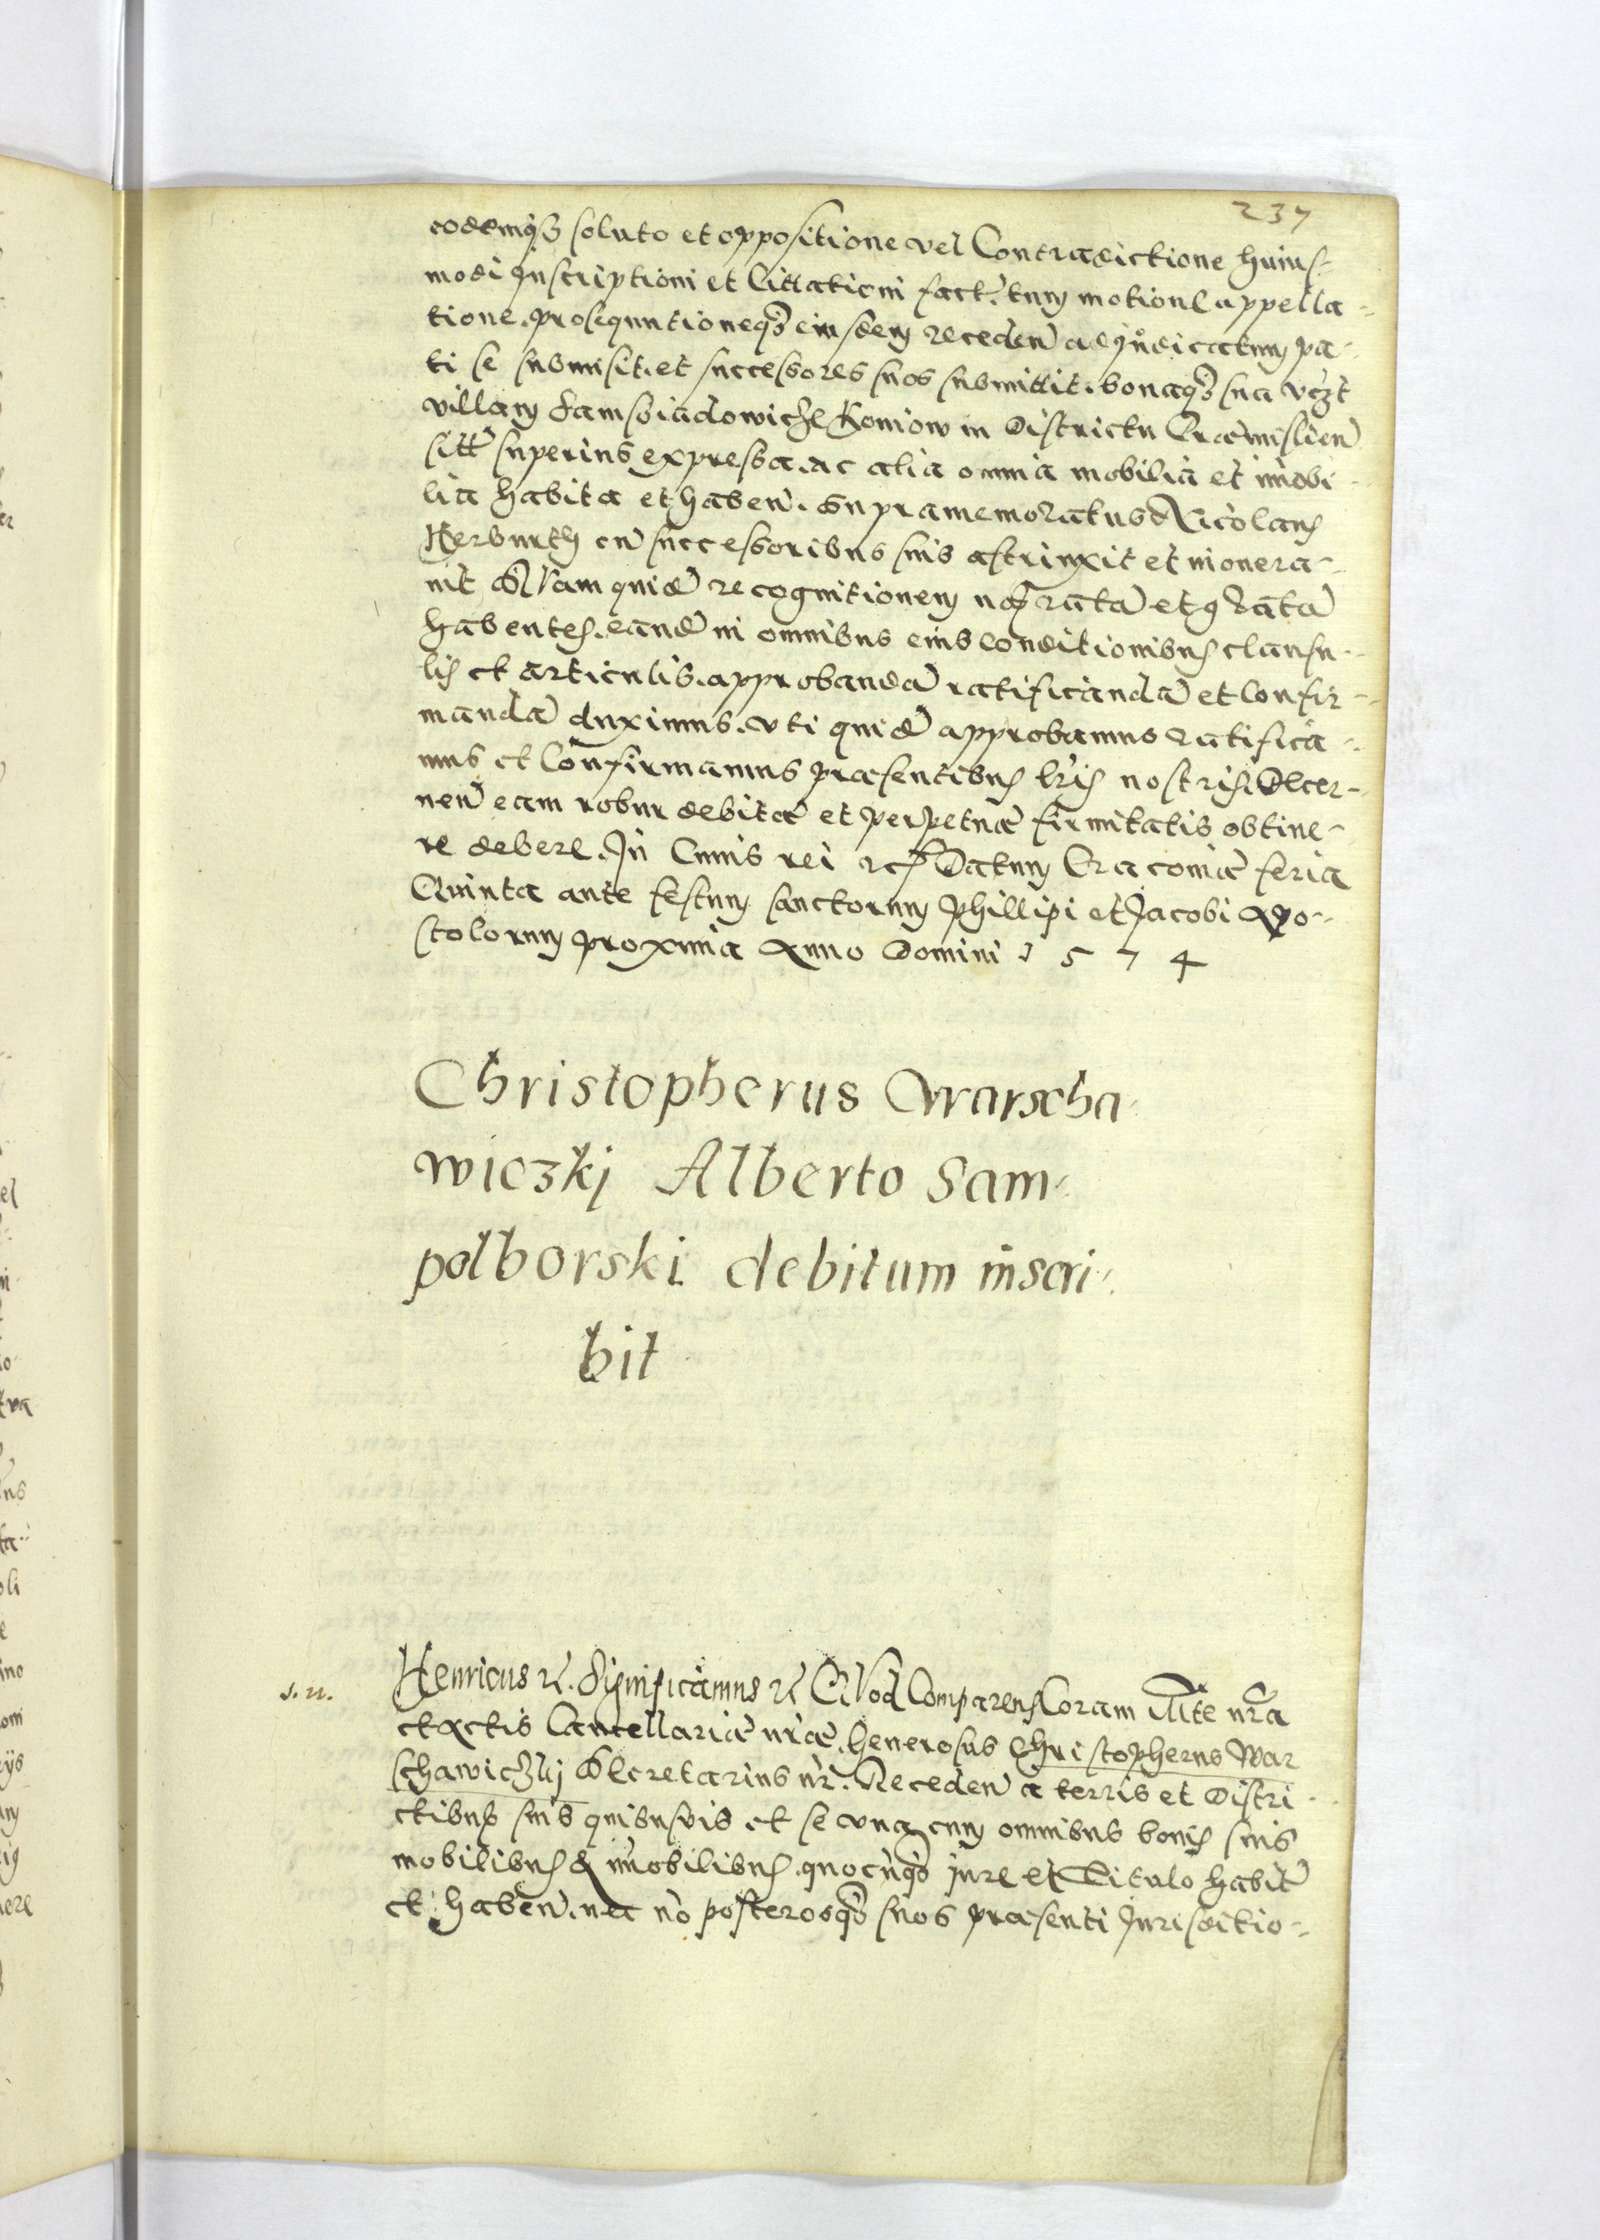 237
eodemqȝ soluto et oppositione vel Contradictione huius-
modi Inscriptioni et Cittationi fact. tum motione appella-
tione. prosequutioneqȝ eiusdem receden̄ adiudicatum pa-
ti se submisit. et successores suos submittit. bonaqȝ sua vtȝt
villam Samsiadowicze Koniow in Districtu Præmislien̄
sitt̄ superius expressa. ac alia omnia mobilia et im̄obi-
lia habita et haben̄. Supramemoratus Nicolaus
Herburth cū successoribus suis astrinxit et inonera-
uit Quam quidē recognitionem nos ratā et gratā
habentes. eandē in omnibus eius conditionibus clausu-
lis et articulis. approbandā ratificandā et Confir-
mandā duximus. vti quidē approbamus ratifica-
mus et Confirmamus præsentibus lr̄is nostris. Decer-
nen̄ eam robur debitæ et perpetuæ firmitatis obtine-
re debere. In Cuius rei rc̄ Datum Cracouiæ feria
Quinta ante festum sanctorum Phillipi et Jacobi Apo-
stolorum proxima Anno Domini 1574
Christopherus Wrarscha-
wiczkj Alberto Sam-
polborski debitum inscri-
bit
s. n.
Henricus rc̄. Significamus rc̄ Quod Comparens Coram Mtē nr̄a
et Actis Cancellariæ nr̄æ. Generosus Christopherus War
schawiczkij Secretarius nr̄. Receden̄ a terris et Distri-
ctibus suis quibusvis. et se vna cum omnibus bonis suis
mobilibus & im̄obilibus. quocūqȝ jure et Titulo habit̄
et haben̄. nec nō posterosqȝ suos præsenti Jurisditio-